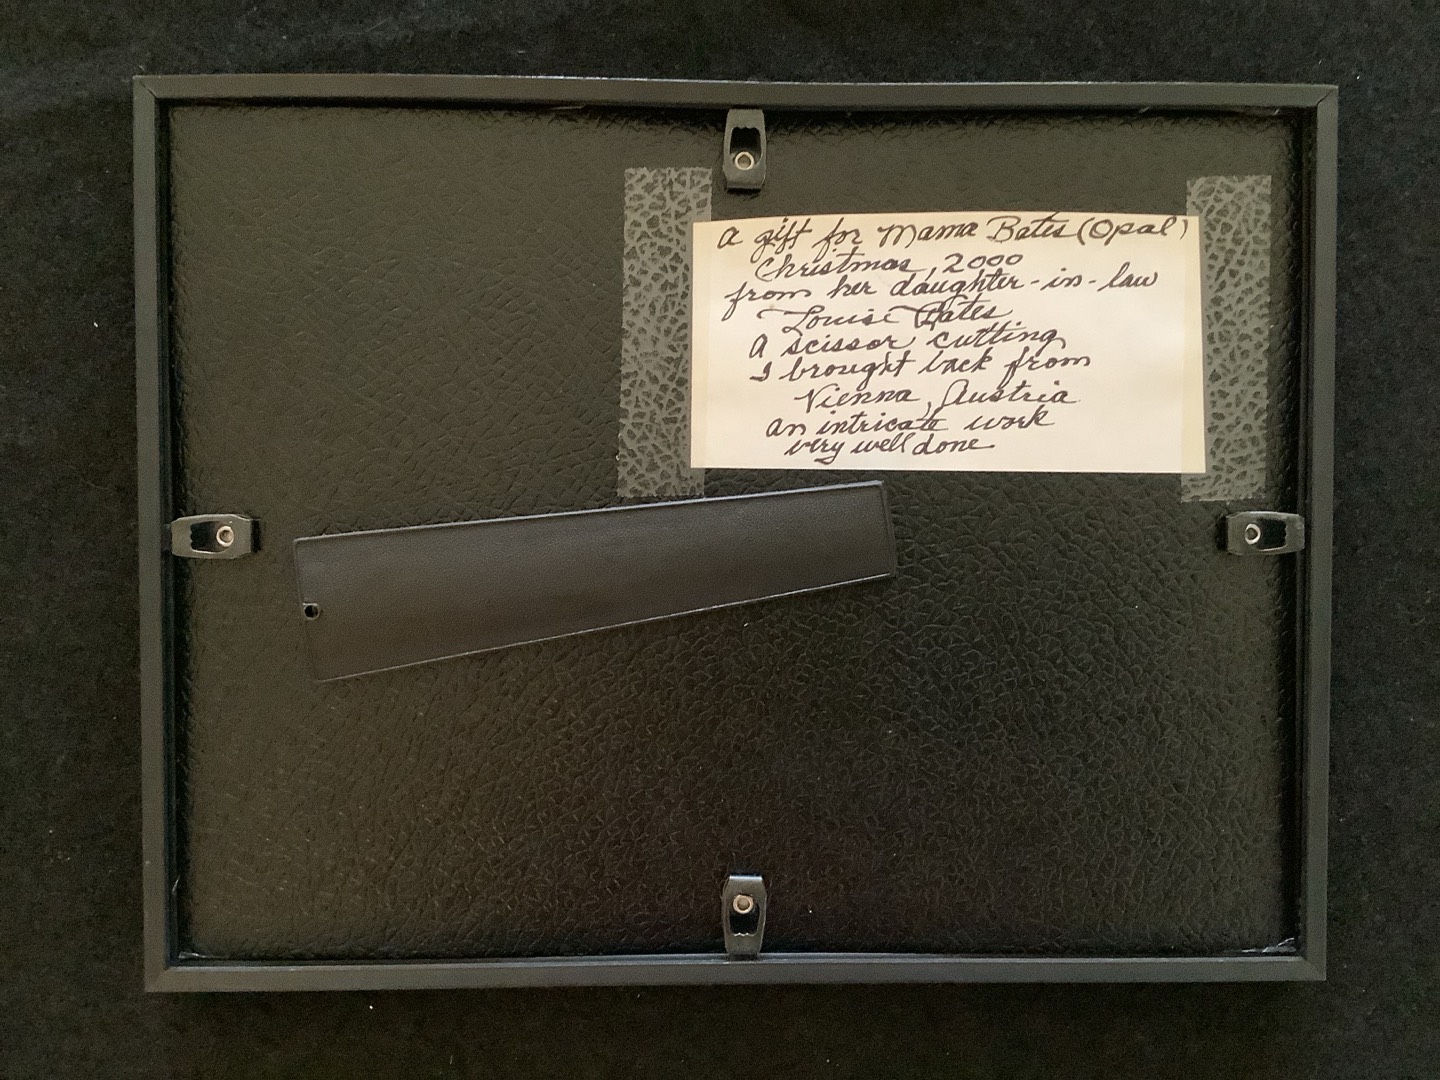 A gift for Mama Bates (Opal)
Christmas, 2000
from her daughter-in-law
Louise Bates
A scissor cutting
I brought back from
Vienna, Austria
an intricate work
very well done